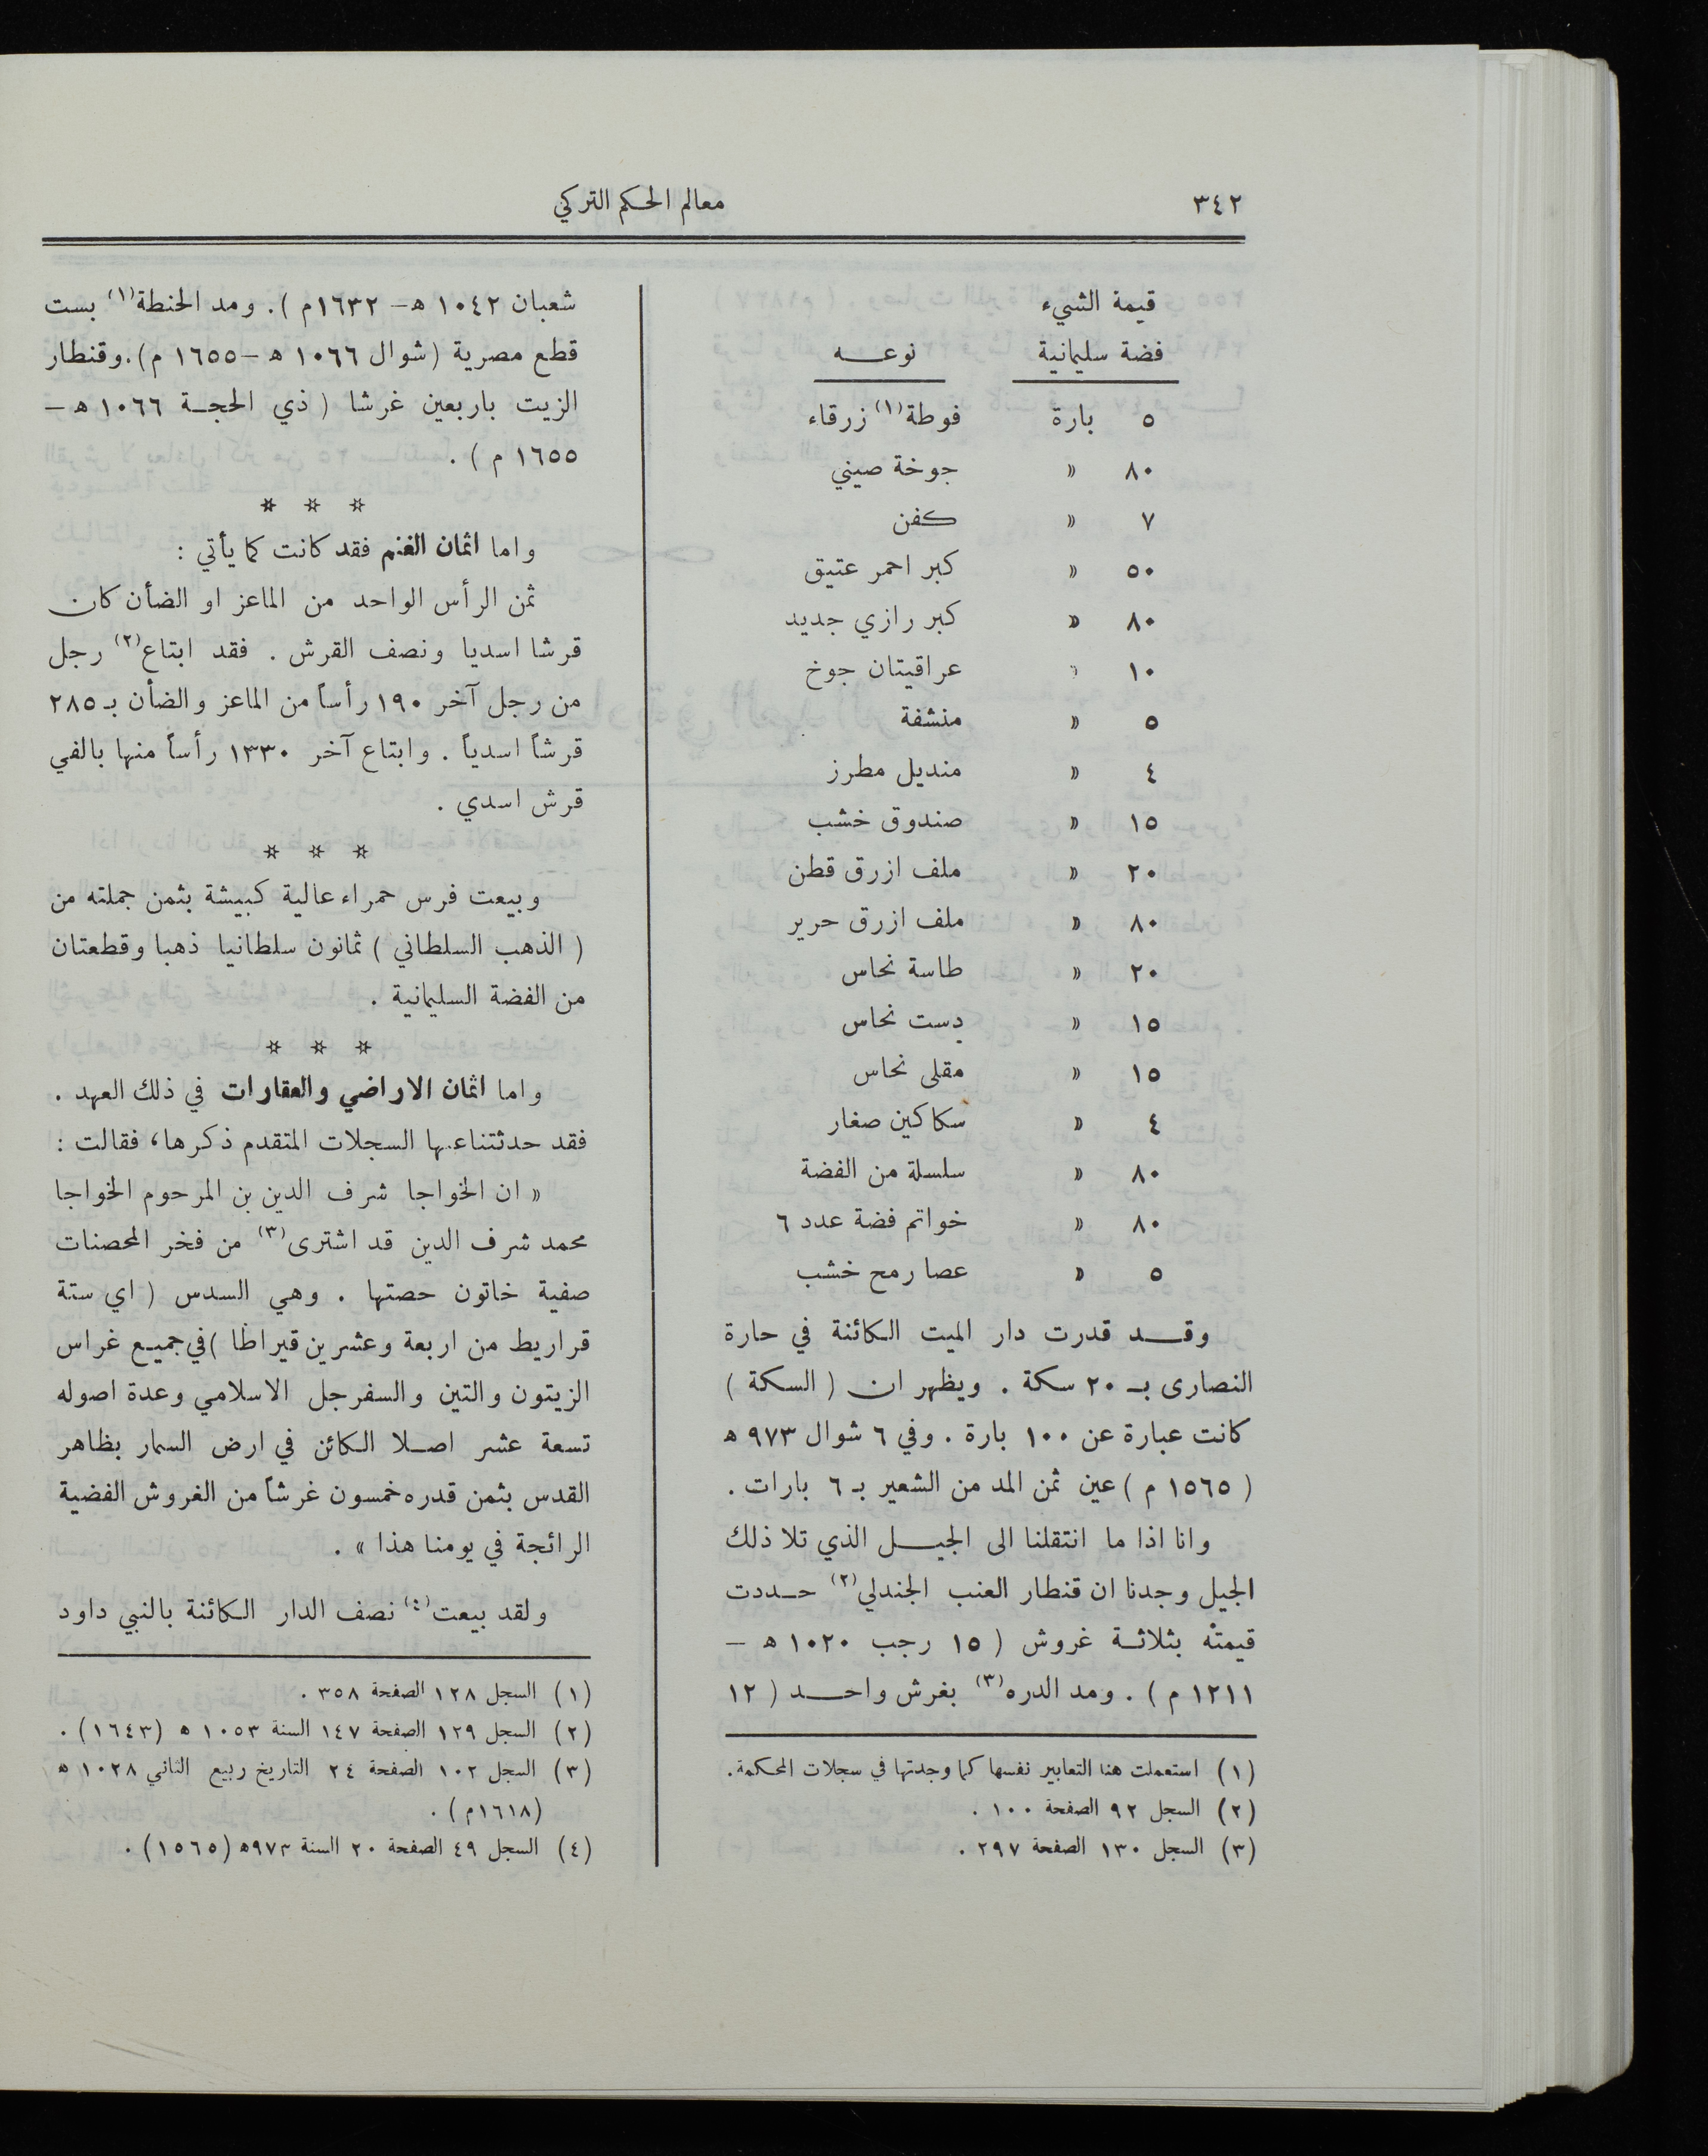 ٣٤٢
معالم الحكم التركي
قيمة الشيء
فضة سليمانية نوعه
٥ بارة فوطة(١) زرقاء
٨٠ » جوخة صيني
٧ » كفن
٥٠ » كبر احمر عتيق
٨٠ » كبر رازي جديد
١٠ » عراقيتان جوخ
٥ » منشفة
٤ » منديل مطرز
١٥ » صندوق خشب
٢٠ » ملف ازرق قطن
٨٠ » ملف ازرق حرير
٢٠ » طاسة نحاس
١٥ » دست نحاس
١٥ » مقلى نحاس
٤ » سكاكين صغار
٨٠ » سلسلة من الفضة
٨٠ » خواتم فضة عدد ٦
٥ » عصا رمح خشب
وقد قدرت دار الميت الكائنة في حارة
النصارى بـ ٢٠ سكة . ويظهر ان ( السكة )
كانت عبارة عن ١٠٠ بارة . وفي ٦ شوال ٩٧٣ ه
( ١٥٦٥ م ) عين ثمن المد من الشعير بـ ٦ بارات .
وانا اذا ما انتقلنا الى الجيل الذي تلا ذلك
الجيل وجدنا ان قنطار العنب الجندلي(٢) حددت
قيمته بثلاثة غروش ( ١٥ رجب ١٠٢٠ ه –
١٢١١ م ) . ومد الدره(٣) بغرش واحد ( ١٢
(١) استعملت هنا التعابير نفسها كما وجدتها في سجلات المحكمة.
(٢) السجل ٩٢ الصفحة ١٠٠ .
(٣) السجل ١٣٠ الصفحة ٢٩٧ .
شعبان ١٠٤٢ ه – ١٦٣٢م ). ومد الحنطة(١) بست
قطع مصرية (شوال ١٠٦٦ ه – ١٦٥٥ م).وقنطار
الزيت باربعين غرشا ( ذي الحجة ١٠٦٦ ه –
١٦٥٥ م ) .
* * *
واما اثمان الغنم فقد كانت كما يأتي :
ثمن الرأس الواحد من الماعز او الضأن كان
قرشا اسديا ونصف القرش . فقد ابتاع(٢) رجل
من رجل آخر ١٩٠ رأساً من الماعز والضأن بـ ٢٨٥
قرشاً اسدياً . وابتاع آخر ١٣٣٠ رأساً منها بالفي
قرش اسدي .
* * *
وبيعت فرس حمراء عالية كبيشة بثمن جملته من
( الذهب السلطاني ) ثمانون سلطانيا ذهبا وقطعتان
من الفضة السليمانية .
* * *
واما اثمان الاراضي والعقارات في ذلك العهد .
فقد حدثتنا عنها السجلات المتقدم ذكرها، فقالت :
« ان الخواجا شرف الدين بن المرحوم الخواجا
محمد شرف الدين قد اشترى(٣) من فخر المحصنات
صفية خاتون حصتها . وهي السدس ( اي ستة
قراريط من اربعة وعشرين قيراطا )في جميع غراس
الزيتون والتين والسفرجل الاسلامي وعدة اصوله
تسعة عشر اصلا الكائن في ارض السمار بظاهر
القدس بثمن قدره خمسون غرشاً من الغروش الفضية
الرائجة في يومنا هذا » .
ولقد بيعت(٤) نصف الدار الكائنة بالنبي داود
(١) السجل ١٢٨ الصفحة ٣٥٨ .
(٢) السجل ١٢٩ الصفحة ١٤٧ السنة ١٠٥٣ ه (١٦٤٣) .
(٣) السجل ١٠٢ الصفحة ٢٤ التاريخ ربيع الثاني ١٠٢٨ ه
(١٦١٨م) .
(٤) السجل ٤٩ الصفحة ٢٠ السنة ٩٧٣ه (١٥٦٥) .